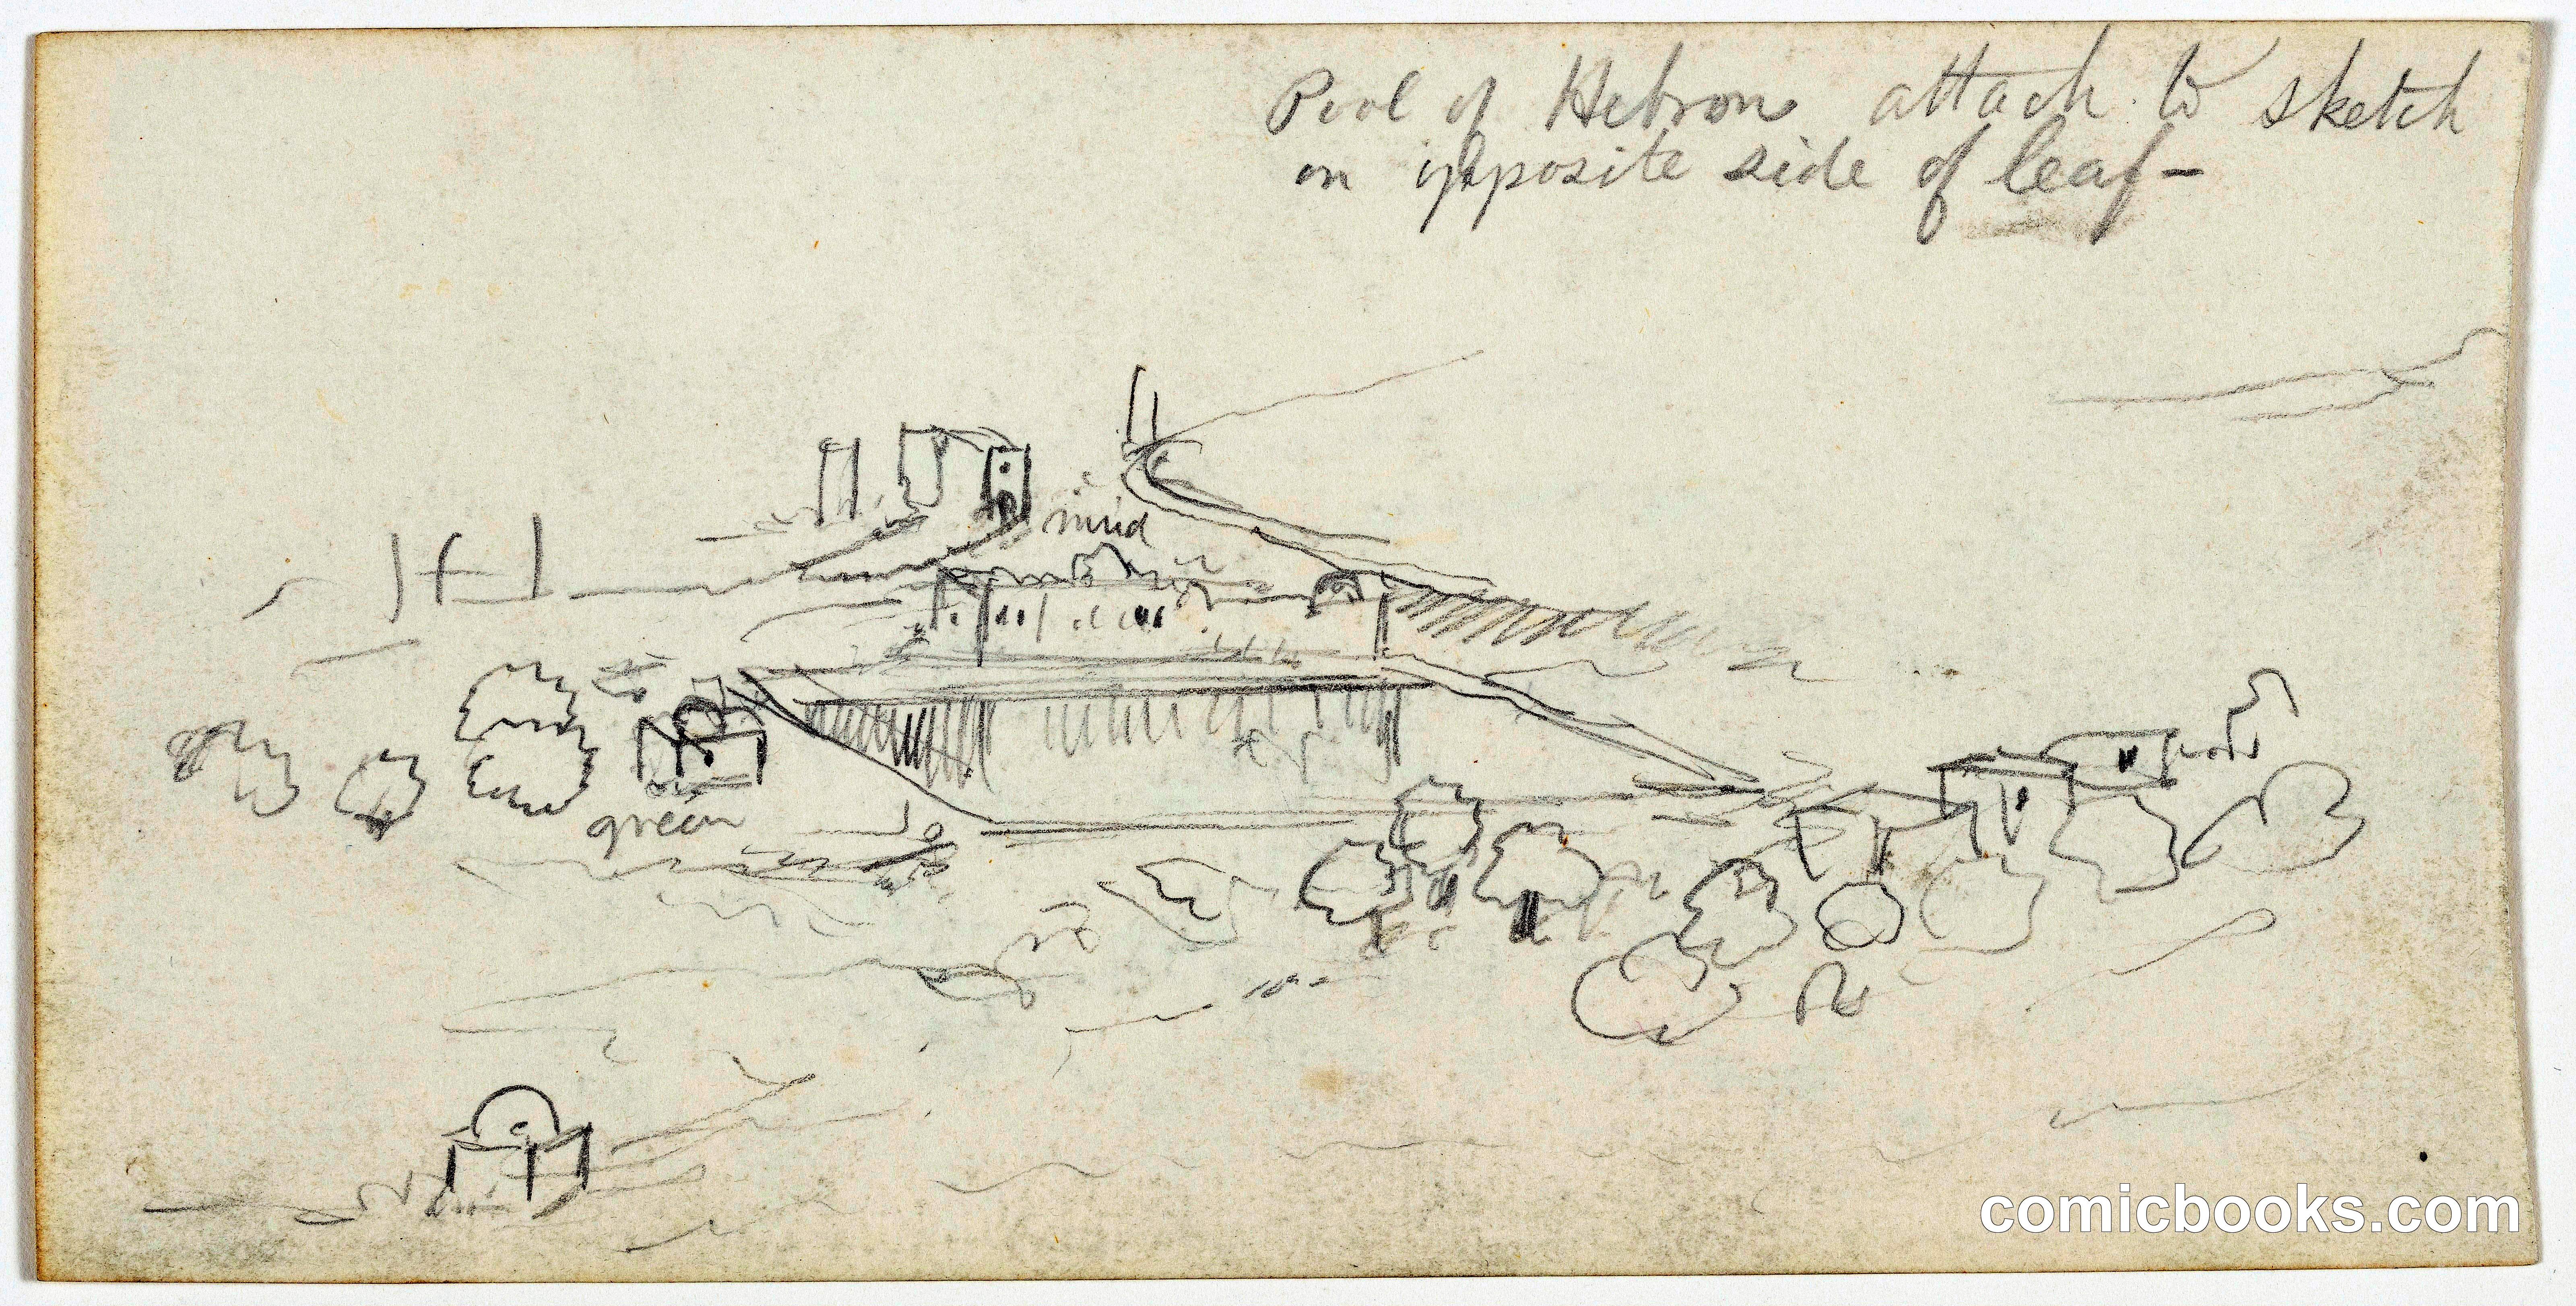 Pool of Hebron attach to sketch
on opposite side of leaf-
mud
green
comicbooks.com